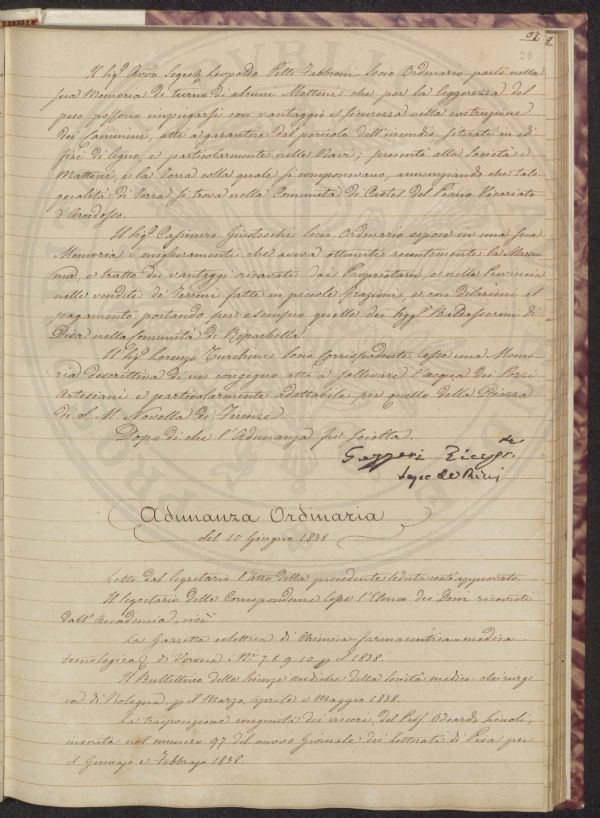 37
20
Il Sig.e Avv.o Segret. Leopoldo Pelli Fabbroni Socio Ordinario parlò nella
sua Memoria di turno di alcuni Mattoni che per la leggerezza del
peso possono impiegarsi con vantaggio e sicurezza nella costruzione
dei Cammini, atti a garantire dal pericolo dell'incendio, situati in edi
fizi di legno, e particolarmente nelle Navi; presentò alla Società i
Mattoni, e la Terra colla quale si componevano, annunziando che tale
qualità di Terra si trova nella Comunità di Castel del Piano Vicariato
d'Arcidosso.
Il Sig.e Casimiro Giusteschi Socio Ordinario espose in una sua
Memoria i miglioramenti che aveva ottenuti recentemente la Marem
ma, e trattò dei vantaggi ricavati dai Proprietarj, e nella Provincia
nelle vendite di Terreni fatte in piccole frazioni, e con dilazioni al
pagamento portando per esempio quelle dei Sigg.i Baldasserini di
Pisa nella Comunità di Riparbella.
Il Sig.e Lorenzo Turchini Socio Corrispondente lesse una Memo-
ria descrittiva di un congegno atto a sollevare l'acqua dei Pozzi
Artesiani e particolarmente adattabile per quello della Piazza
di S. M. Novella di Firenze
Dopo di che l'Adunanza fu sciolta.
Gazzeri
Lapo de' Ricci
Adunanza Ordinaria
del 10 Giugno 1838
Letto dal Segretario l'Atto della precedente seduta restò approvato.
Il Segretario delle Corrispondenze lesse l'Elenco dei Doni ricevuti
dall'Accademia, cioè
La Gazzetta eclettica di Chimica-farmaceutica-medica-
tecnologica di Verona i N.i 7. 8. 9. 10 p. il 1838.
Il Bullettino delle Scienze mediche della Società medico-chirurgi
ca di Bologna, p. il Marzo, Aprile e Maggio 1838.
La trasposizione congenita dei visceri, del Prof. Odoardo Linoli,
inserita nel numero 97 del nuovo Giornale dei Letterati di Pisa per
il Gennajo e Febbrajo 1838.